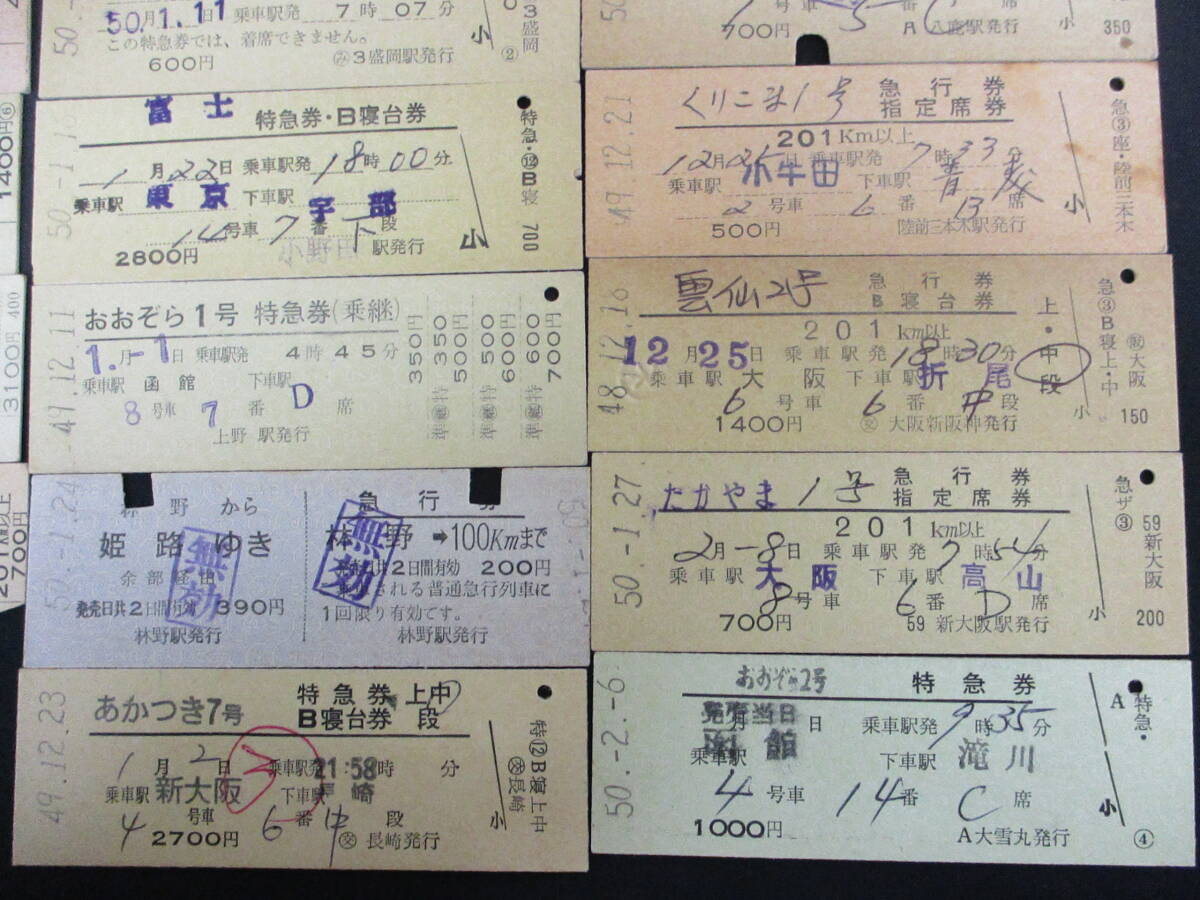 50月1.11日 乗車駅発 7時07分
この特急券では、着席できません。
600円 み3盛岡駅発行
小
②
3盛岡
50.-1.1
富士 特急券・B寝台券
1月22日 乗車駅発 18時00分
乗車駅 東京 下車駅 宇部
14号車 7番 下段
2800円 小野田駅発行
小
特急・⑫B寝
700
49.12.11
おおぞら1号 特急券(乗継)
1.月-1日 乗車駅発 4時45分
乗車駅 函館 下車駅
8号車 7番 D席
上野駅発行
350円
準急特 350
500円
準急特 500
600円
準急特 600
700円
50.-1.24
林野から
姫路ゆき
余部経由
発売日共2日間有効 390円
林野駅発行
無効
急行券
林野→100Kmまで
発売日共2日間有効 200円
される普通急行列車に
1回限り有効です。
林野駅発行
無効
49.12.23
あかつき7号 特急券 上中
B寝台券 段
1月2日 乗車駅発 21:58時 分
乗車駅 新大阪 下車駅 長崎
4号車 6番 中段
2700円 交長崎発行
小
特⑫B寝上中
交長崎
1400円⑥
3100円 400
201K米以上
700円
700円 A 八鹿駅発行
350
49.12.21
くりこま1号 急行券
指定席券
201Km以上
12月21日 乗車駅発 7時33分
乗車駅 小牛田 下車駅 青森
2号車 6番 B席
500円 陸前三本木駅発行
小
急③座・陸前三本木
48.12.16
雲仙2号 急行券
B寝台券
201km以上
12月25日 乗車駅発 18時30分
乗車駅 大阪 下車駅 折尾
6号車 6番 中段
1400円 交 大阪新阪神発行
上・中段
小
急③B寝上・中
大阪
150
50.-1.27
たかやま1号 急行券
指定席券
201km以上
2月-8日 乗車駅発 7時54分
乗車駅 大阪 下車駅 高山
8号車 6番 D席
700円 59 新大阪駅発行
小
急ザ③
59新大阪
200
50.-2.-6
おおぞら2号 特急券
発売当日
月 日 乗車駅発 9時35分
乗車駅 函館 下車駅 滝川
4号車 14番 C席
1000円 A大雪丸発行
小
特急・A
④